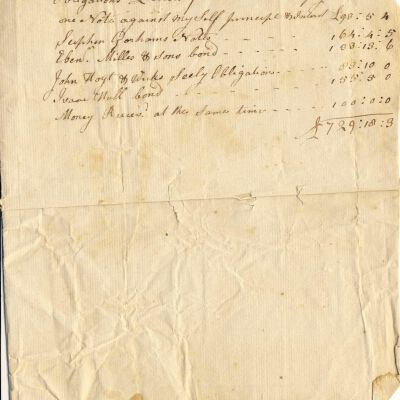 one Note against myself principle & Intrest £98:5 4
Stephen Gorhams Notts - - - 164:4:5
Eben.r Milles & sons bond - - - 183:13:6
John Hoyt & Wicks Obligation - - 83:10 0
Isaac bond - - - - -
Money Receiv.d at the same time - - - 100:0:0
£729:18:3